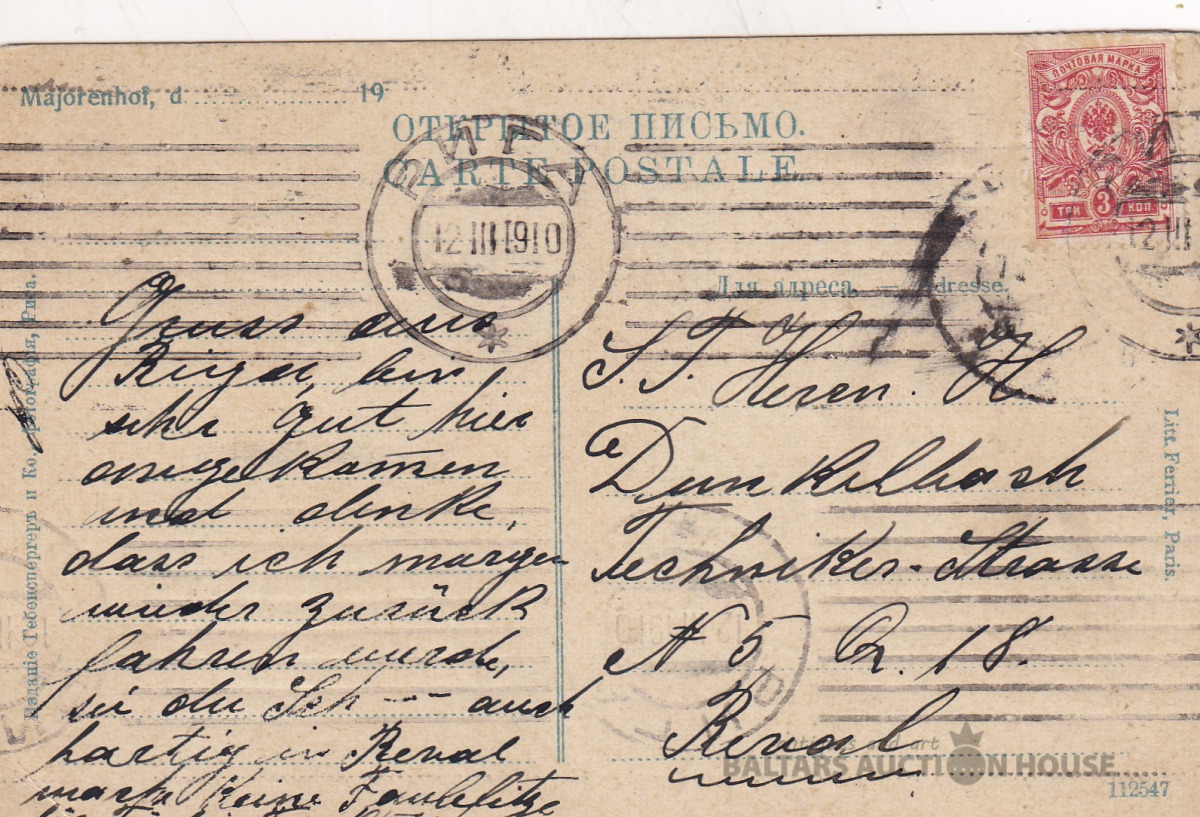 Majorenhof, d 19
ОТКРЫТОЕ ПИСЬМО.
CARTE POSTALE.
ПОЧТОВАЯ МАРКА
ТРИ 3 КОП.
РИГА
12 III 1910
12 III
Для адреса. — Adresse.
Gruss aus
Riga, bin
sehr gut hier
angekomen
und denke,
dass ich morgen
wieder zurück
fahren werde,
sei du Sch --- auch
in Reval
keine
S. T. Heren. H
Dunkelbach
Techniker-Strasse
N 5 Q. 18.
Reval
Изданіе Гебенспергеръ и Ко, Рига.
Litt. Ferrier, Paris.
antiques and art
BALTARS AUCTION HOUSE
112547